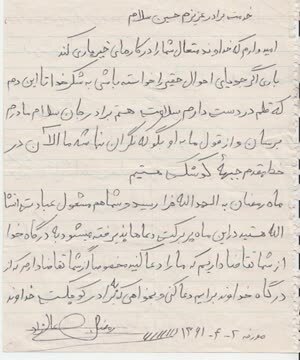 خدمت برادر عزیزم حسین سلام
امیدوارم که خداوند متعال شما را در کارهای خیر یاری کند
باری اگر جویای احوال حقیر را خواسته باشی به شکر خدا تا این دم
که قلم در دست دارم سلامت هستم برادر جان سلام مادرم
برسان و از قول ما به او بگو که نگران نباشد ما الان در
خط مقدم جبهه کوشک هستیم
ماه رمضان به الحمد الله فرا رسید و شما هم مشغول عبادت انشا
الله هستید در این ماه پر برکت دعاها پذیرفته میشود به درگاه خدا
از شما تقاضا داریم که ما را دعا کنید خصوصا از شما تقاضا دارم که از
درگاه خداوند برایم دعا کنی و بخواهی که برادر کوچکت خداوند
مورخه ۲-۴-۱۳۶۱ رمضان